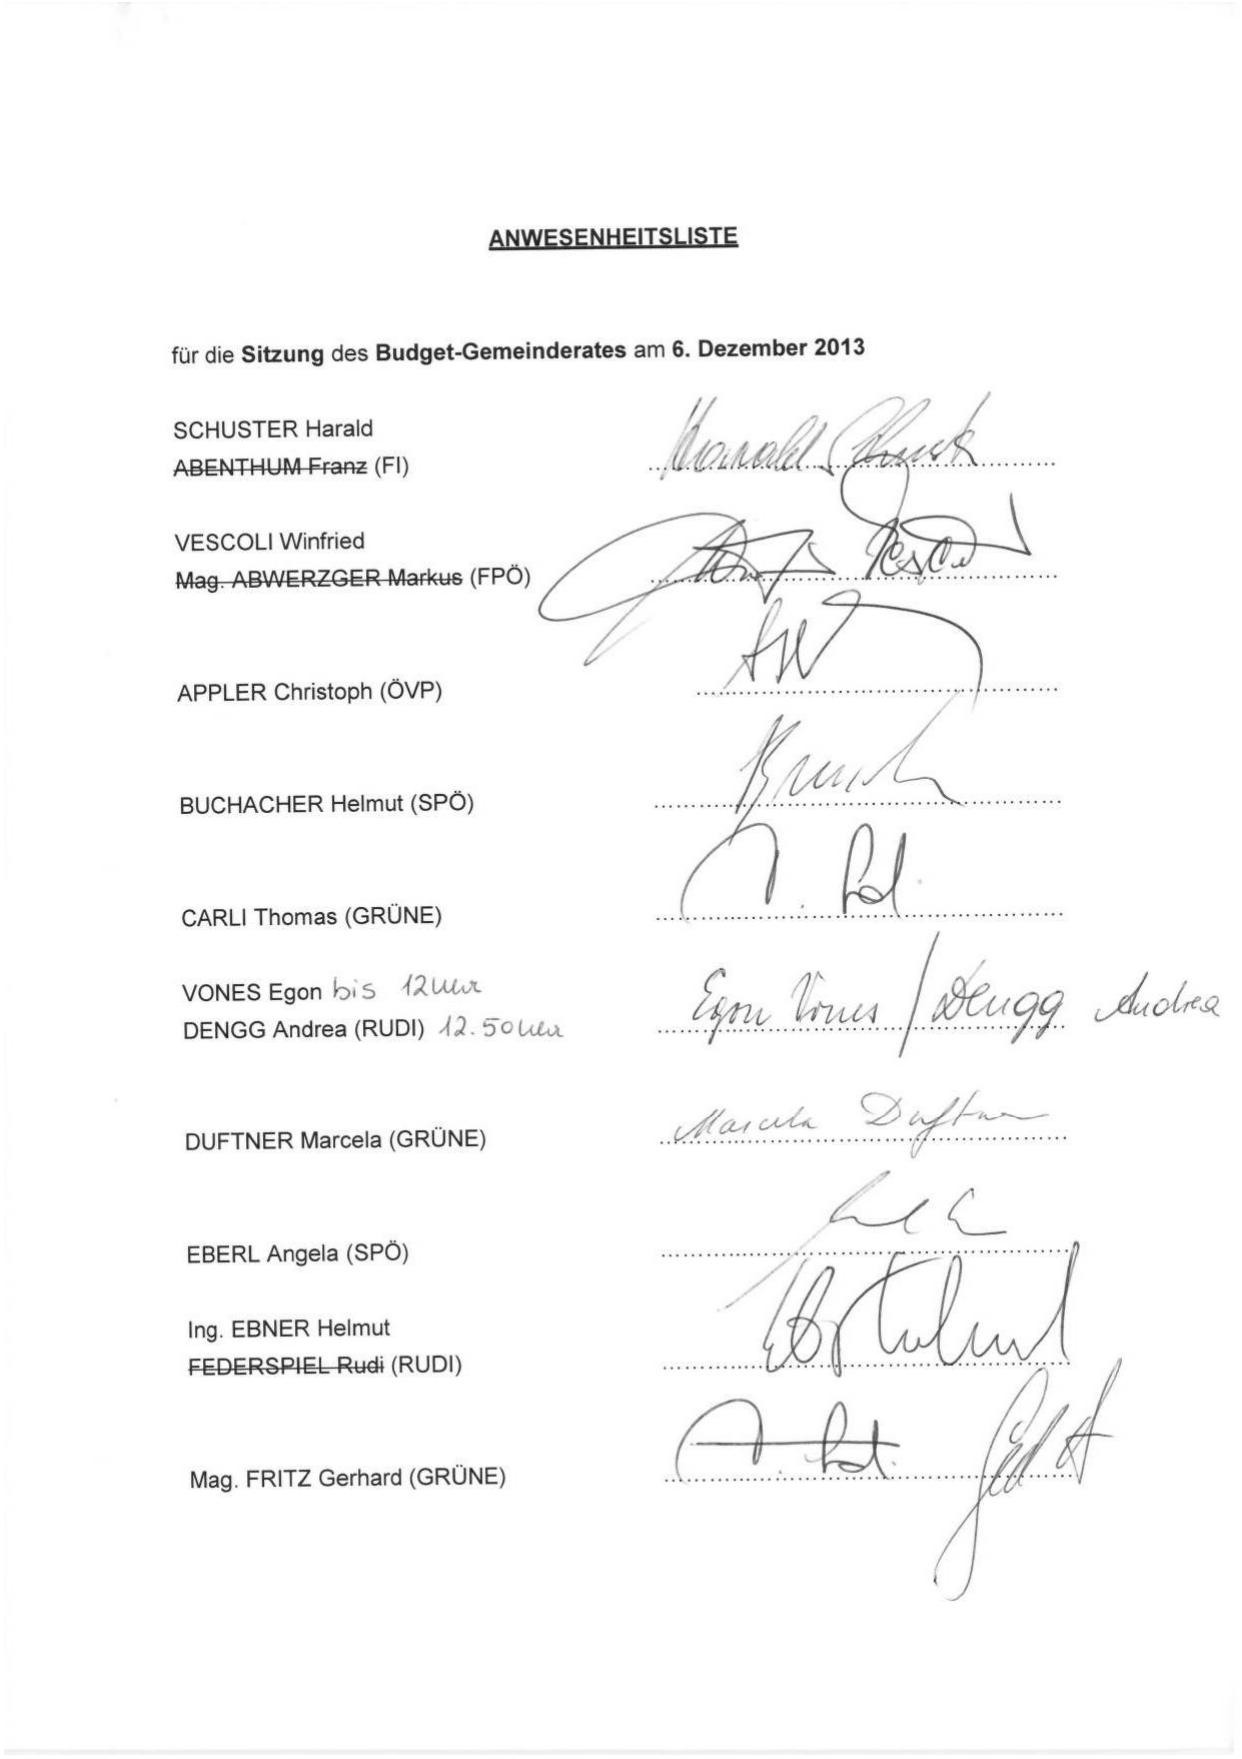 ANWESENHEITSLISTE
für die Sitzung des Budget-Gemeinderates am 6. Dezember 2013
SCHUSTER Harald
ABENTHUM Franz (FI) Harald
VESCOLI Winfried
Mag. ABWERZGER Markus (FPÖ)
APPLER Christoph (ÖVP)
BUCHACHER Helmut (SPÖ)
CARLI Thomas (GRÜNE)
VONES Egon bis 12 Uhr
DENGG Andrea (RUDI) 12.50 Uhr Egon Vones / Dengg Andrea
DUFTNER Marcela (GRÜNE) Marcela Duftner
EBERL Angela (SPÖ)
Ing. EBNER Helmut
FEDERSPIEL Rudi (RUDI)
Mag. FRITZ Gerhard (GRÜNE)